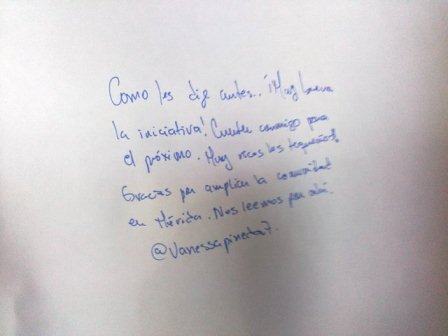 Como les dije antes.. ¡Muy buena
la iniciativa! Cuenten conmigo para
el próximo. Muy ricos los tequeños!
Gracias por ampliar la comunidad
en Mérida. Nos leemos por ahí.
@Vanessapineda7.